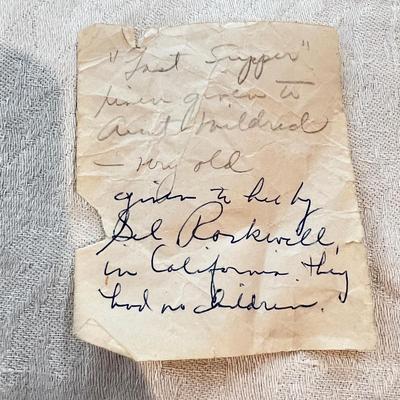 "Last Supper"
linen given to
Aunt Mildred
— very old
given to her by
Sil Rockwell,
in California. They
had no children.